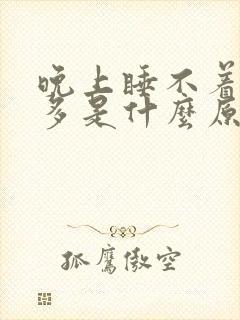 晚上睡不着
多是什麼原
孤鷹傲空